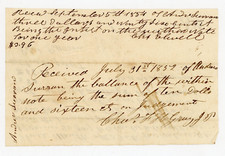 Recd September 5th 1854 of Andrew Surram
three Dollars and ninty six cents
Being the Interest on the within note
for one year
$3.96
Received July 31st 1852 of Andrew
Surram the ballance of the within
note being the sum of ten Dolls
and sixteen cts on Judgement
Chas
Andrew Surram